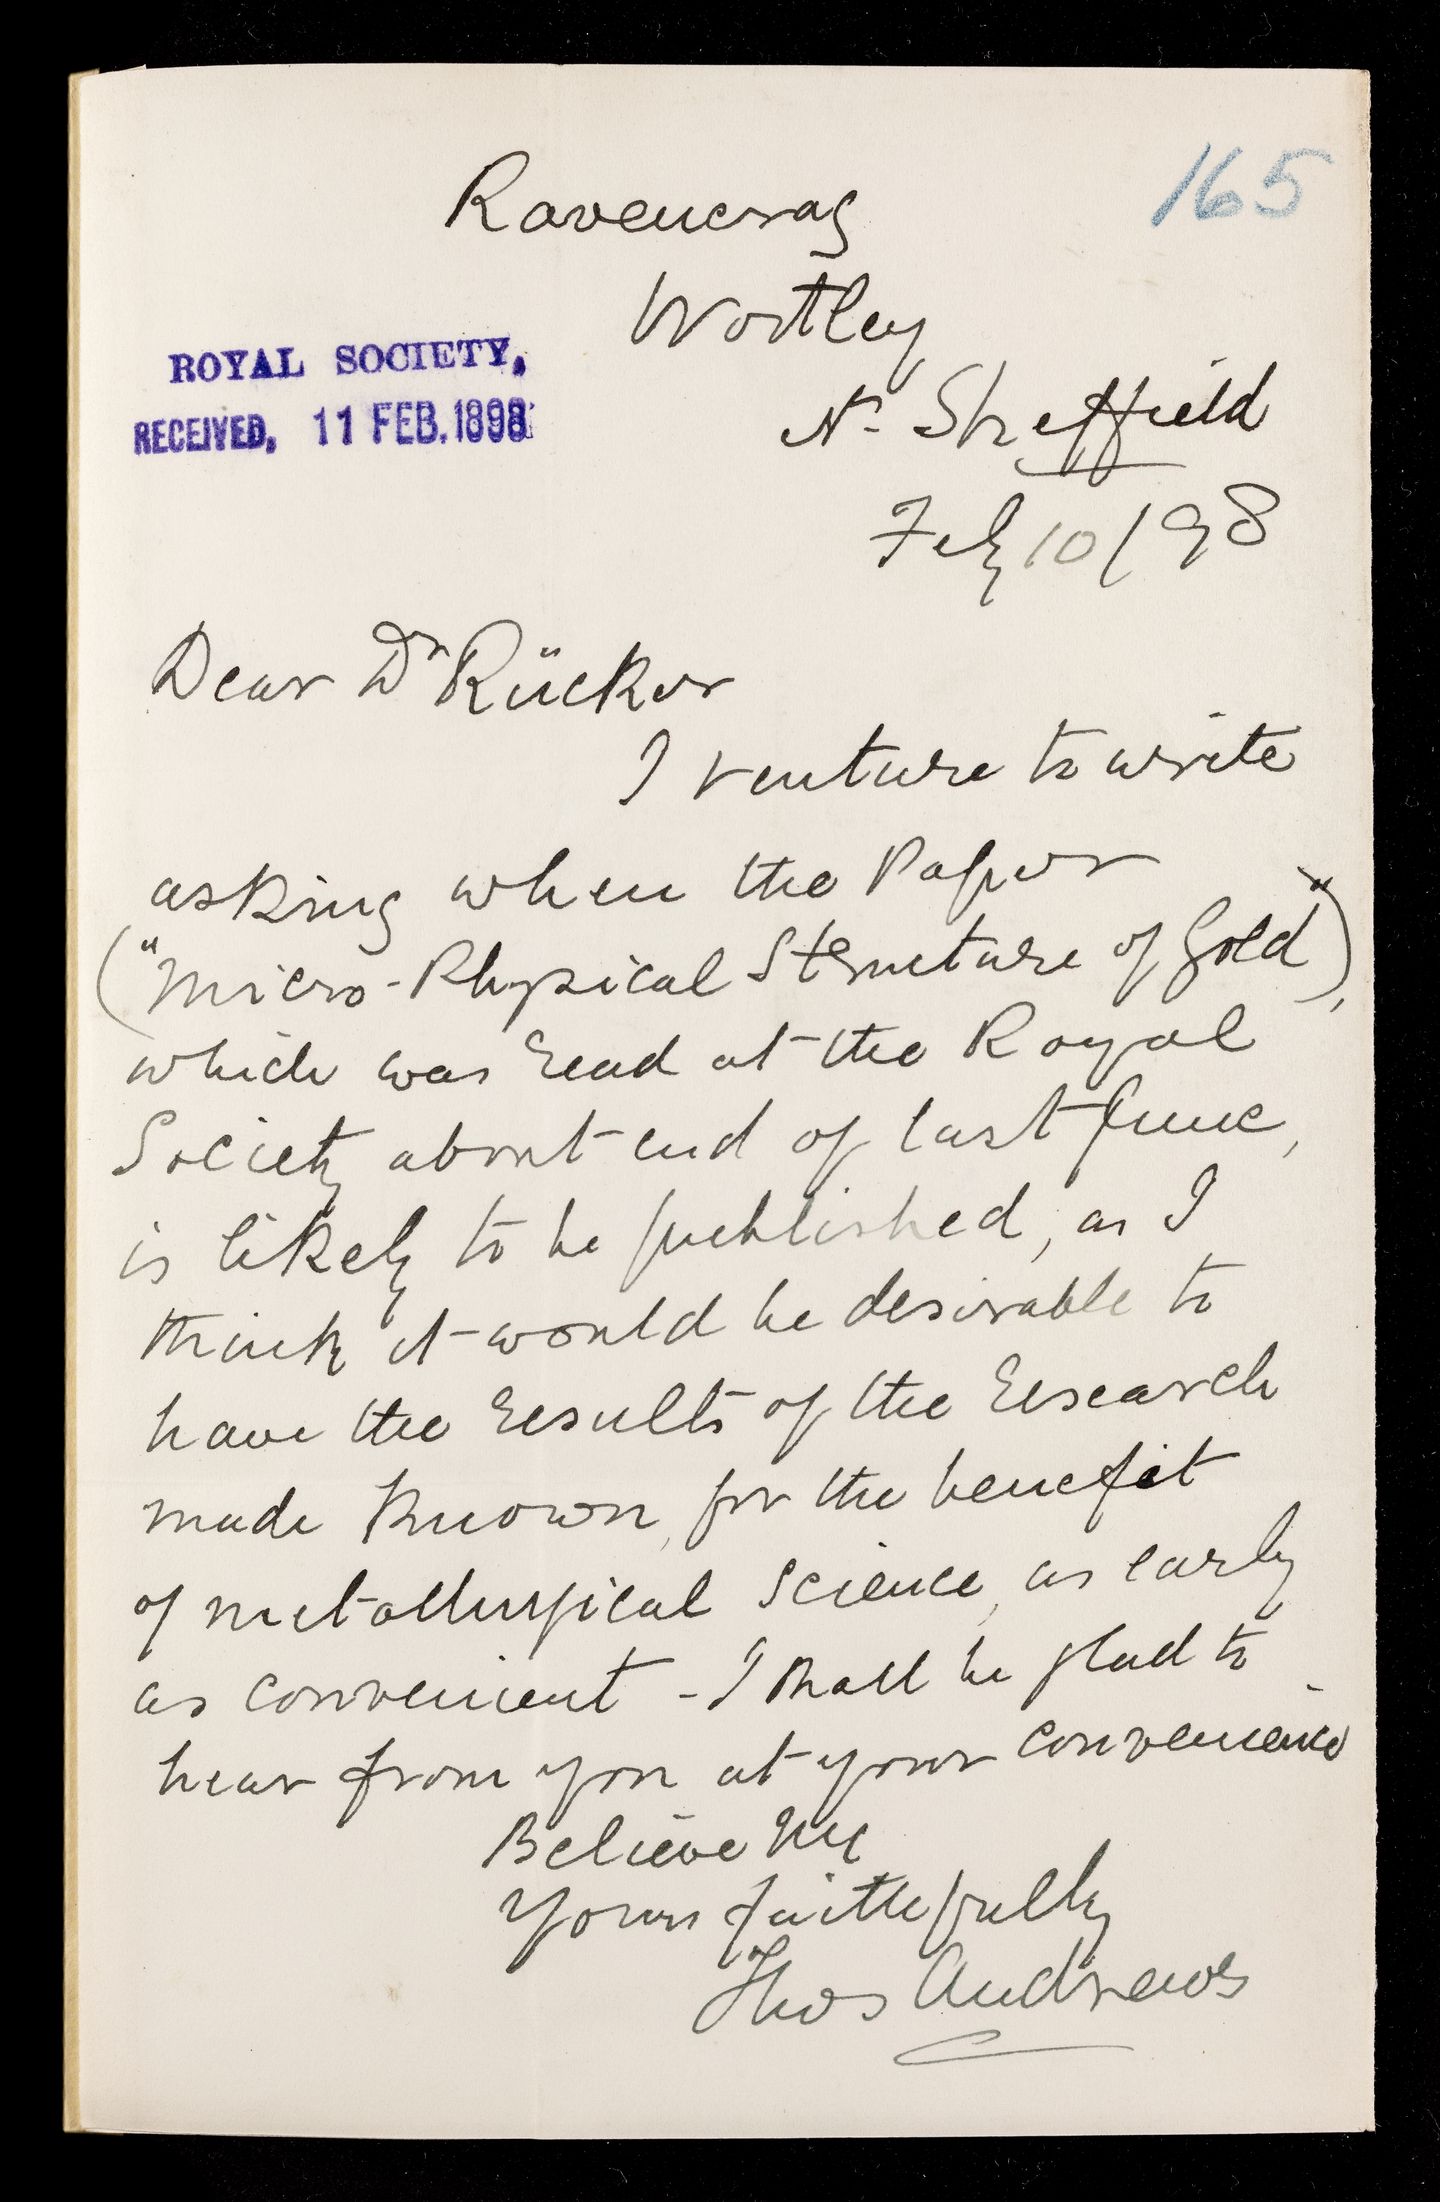 165
Ravencrag
Wortley
Nr Sheffield
Feby 10/98
ROYAL SOCIETY,
RECEIVED, 11 FEB. 1898
Dear Dr Rücker
I venture to write
asking when the Paper
("Micro-Physical Structure of Gold"),
which was read at the Royal
Society about end of last June,
is likely to be published, as I
think it would be desirable to
have the results of the research
made known, for the benefit
of metallurgical science, as early
as convenient - I shall be glad to
hear from you at your convenience
Believe Me
Yours faithfully
Thos Andrews